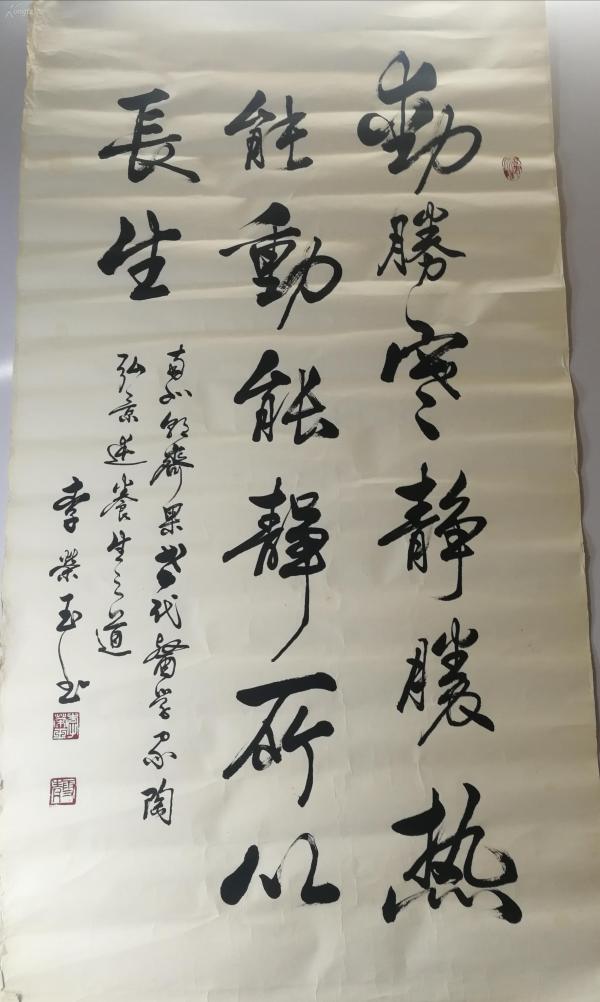 動勝寒静勝热
能動能靜所以
長生
南北朝齊梁时代醫学家陶
弘景述養生之道
李榮玉书